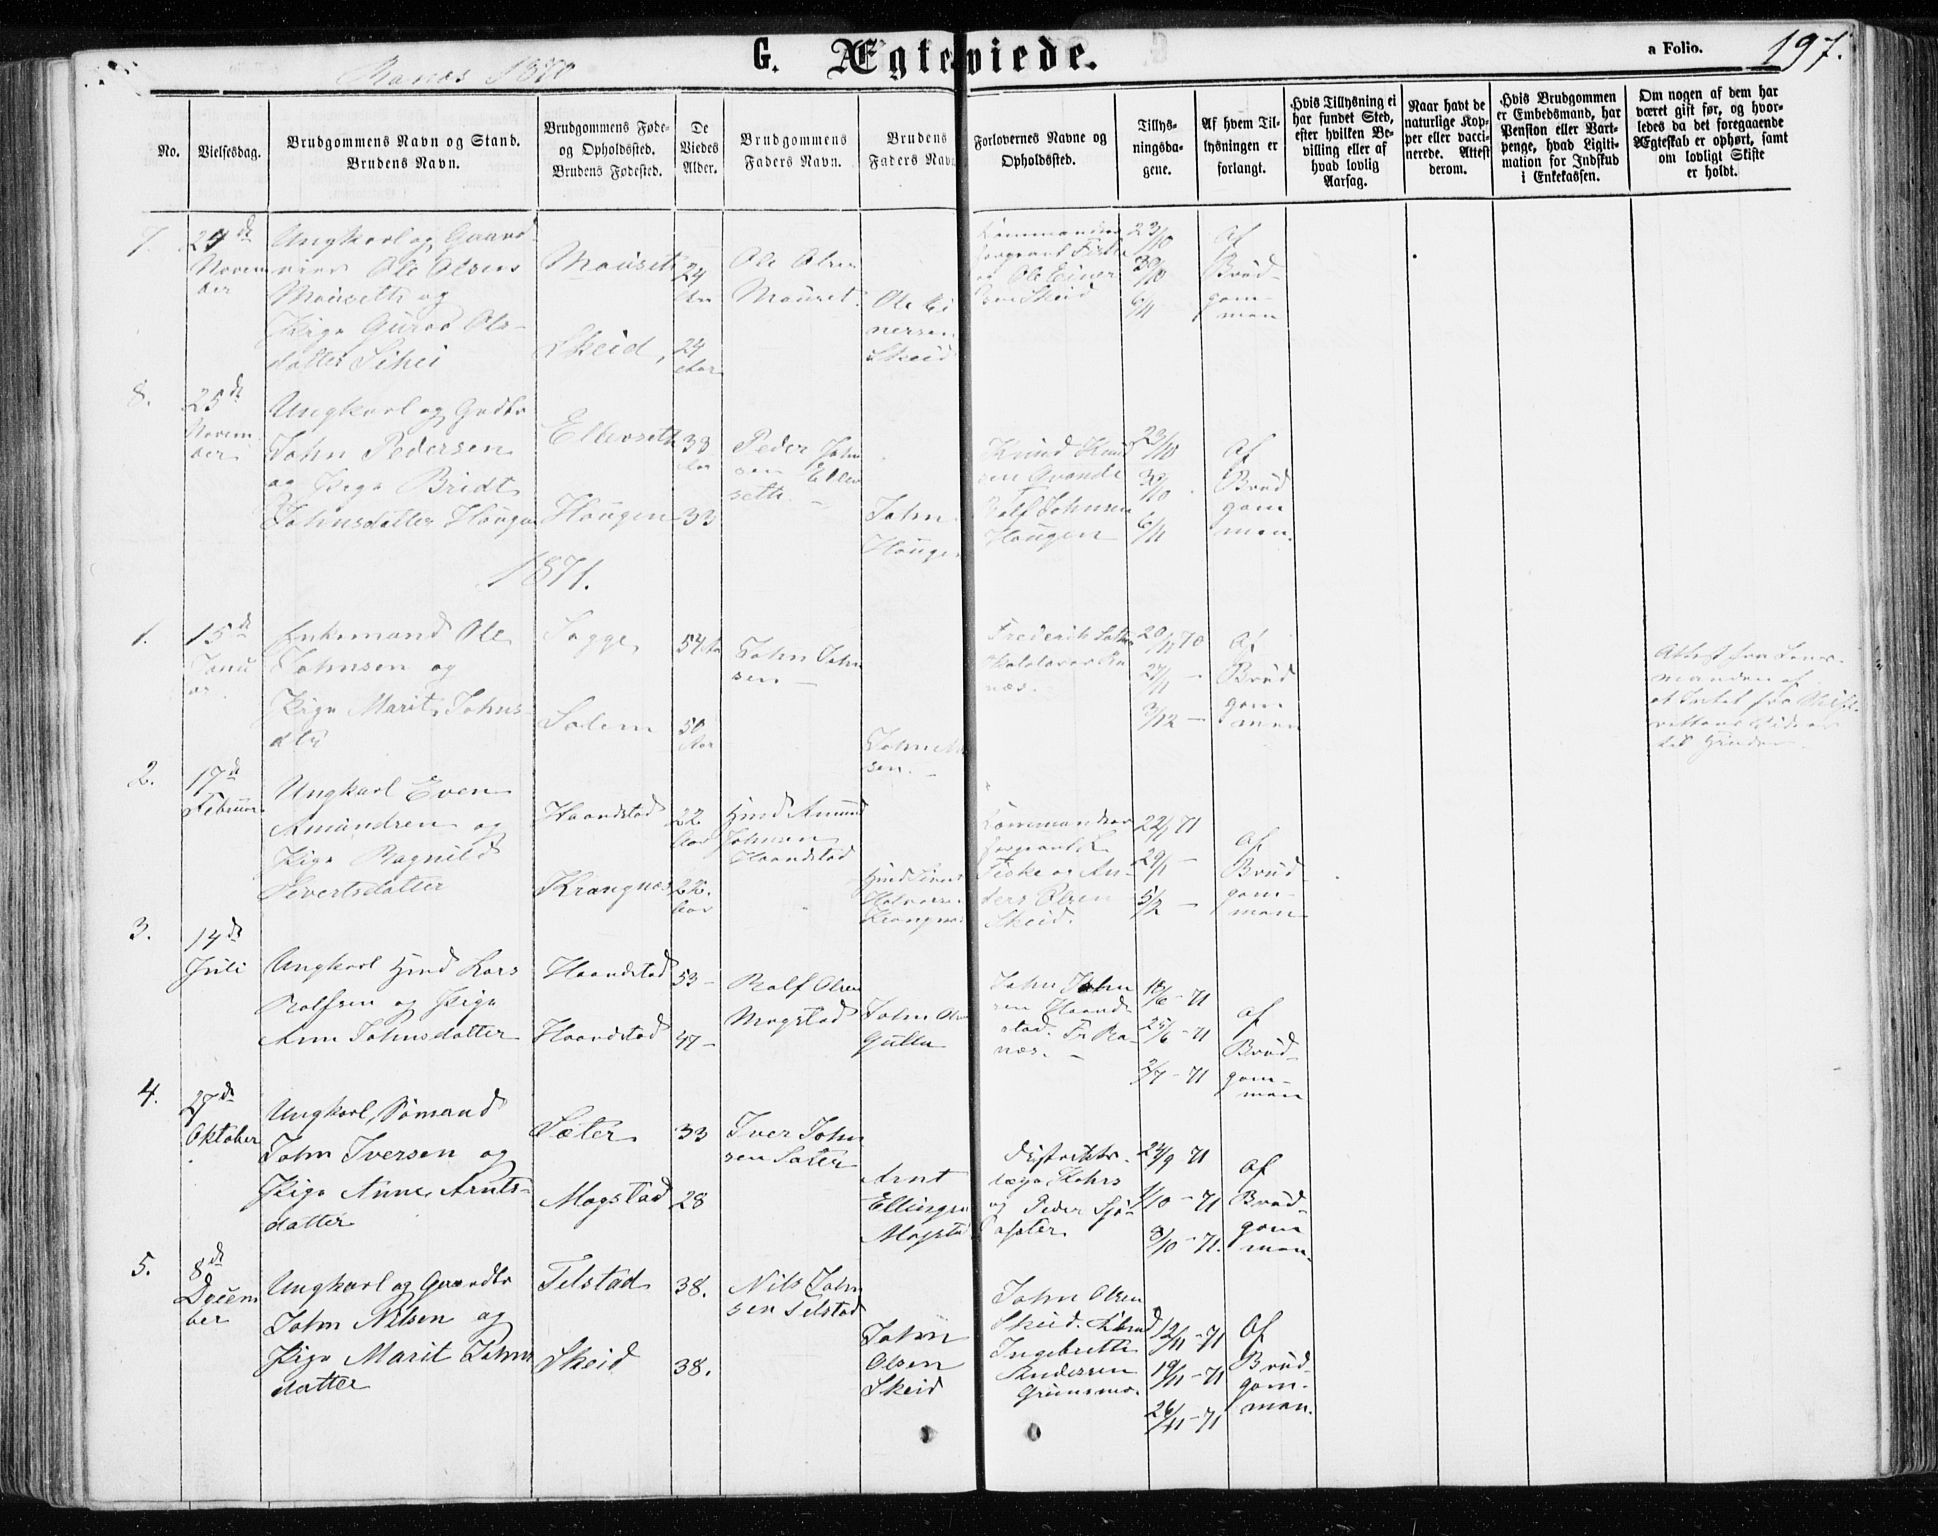 G. Ægteviede.
a Folio.
197.
Ranæs 1870
No.
Vielsesdag.
Brudgommens Navn og Stand.
Brudens Navn.
Brudgommens Føde-
og Opholdssted.
Brudens Fødested.
De
Viedes
Alder.
Brudgommens
Faders Navn.
Brudens
Faders Navn
Forlovernes Navne og
Opholdssted.
Tillys-
ningsda-
gene.
Af hvem Til-
lysningen er
forlangt.
Hvis Tillysning ei
har fundet Sted,
efter hvilken Be-
villing eller af
hvad lovlig
Aarsag.
Naar havt de
naturlige Kop-
per eller vacci-
nerede. Attest
derom.
Hvis Brudgommen
er Embedsmand, har
Pension eller Vart-
penge, hvad Ligiti-
mation for Indskub
i Enkekassen.
Om nogen af dem har
været gift før, og hvor-
ledes da det foregaaende
Ægteskab er ophørt, samt
om lovligt Skifte
er holdt.
7.
24de
Novem
ber
Ungkarl og Gaard-
Ole Olsen
Mauseth og
Pige Guroe Ols-
datter
Mauseth
Skeid,
24
Aar
24
Aar
Ole Olsen
Mauset.
Ole Ei
nersen
Skeid
Kommandeer
sergeant Fiske
og Ole Einer
sen Skeid
23/10
30/10
6/11
Af
Brud-
gom-
men
8.
25de
Novem
ber
Ungkarl og Grdbr
John Pedersen
og Pige Bridt
Johnsdatter Haugen
Ellevseth
Haugen
38
Aar
33
Peder John
sen Ellev
seth. -
John
Hauge
Knud Knud
sen Qvande
Rolf Johnsen
Haugen
23/10
30/10
6/11
Af
Brud
gom
men.
1871.
1.
15de
Janu
ar
Enkemand Ole
Johnsen og
Pige Marit Johns-
dtr
Sogge
Solem
54 Aar
50
Aar
John John
sen -
John
sen. -
Frederik
Ra
næs.
20/11 70
27/11 -
3/12 -
Af
Brud
gom
men
Attest fra Lens-
manden af
at Intet fra Skifte-
rettens Side er
til Hinder -
2.
17de
Februar
Ungkarl Even
Amundsen og
Pige Ragnild
Sivertsdatter
Haandstad
Krangnæs
22
Aar
22.
Aar
Hmd Amund
Johnsen
Haandstad
Hmd Sivert
Halvorsen
Krangnæs
Kommandeer
sergeant L.
Fiske og An-
ders Olsen
Skeid.
22/1 71
29/1 -
5/2 -
Af
Brud-
gom-
men
3.
14de
Juli
Ungkarl Hmd Lars
Rolfsen og Pige
Ann Johnsdatter
Haandstad
Haandstad
53 -
47 -
Rolf Olsen
Magstad
John Olsen
Gulla
John John
sen Haand-
stad. Fr. Ra-
næs. -
18/6 - 71
25/6 - 71
2/7 - 71
Af
Brud-
gom-
men
4.
27de
Oktober
Ungkarl, Sømand
John Iversen og
Pige Anne Arnts-
datter
Sæter
Magstad
33
28
Iver John
sen Sæter
Arnt
Ellingsen
Magsta
Distrikts-
læge Kahrs
og Peder Sjø-
asæter
24/9 71
1/10 - 71
8/10 - 71.
Af
Brud-
gom
men.
5.
8de
Decem
ber
Ungkarl og Gaardbr
John Nilsen og
Pige Marit Johns
datter
Telstad
Skeid
38.
38.
Nils John
sen Telstad
John
Olsen
Skeid
John Olsen
Skeid.
Ingebrikt
Andersen
Grimsmo.
12/11 - 71
19/11 - 71
26/11 - 71
Af
Brud-
gom-
men.